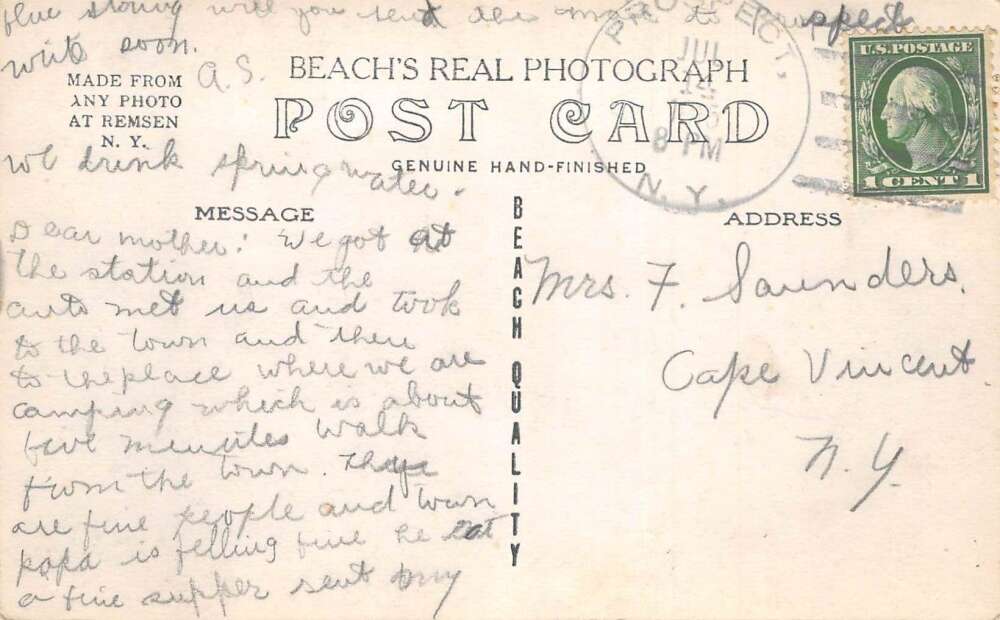 will you send
write soon.
A.S.
MADE FROM
ANY PHOTO
AT REMSEN
N. Y.
BEACH'S REAL PHOTOGRAPH
POST CARD
GENUINE HAND-FINISHED
PROSPECT,
JUL
8 PM
N.Y.
U.S. POSTAGE
1 CENT 1
we drink spring water.
MESSAGE
Dear mother: We got at
the station and the
auto met us and took
to the town and then
to the place where we are
camping which is about
five menuites walk
from the town. They
are fine people and town
papa is felling fine he eat
a fine supper sent my
BEACH QUALITY
ADDRESS
Mrs. F. Saunders.
Cape Vincent
N.Y.